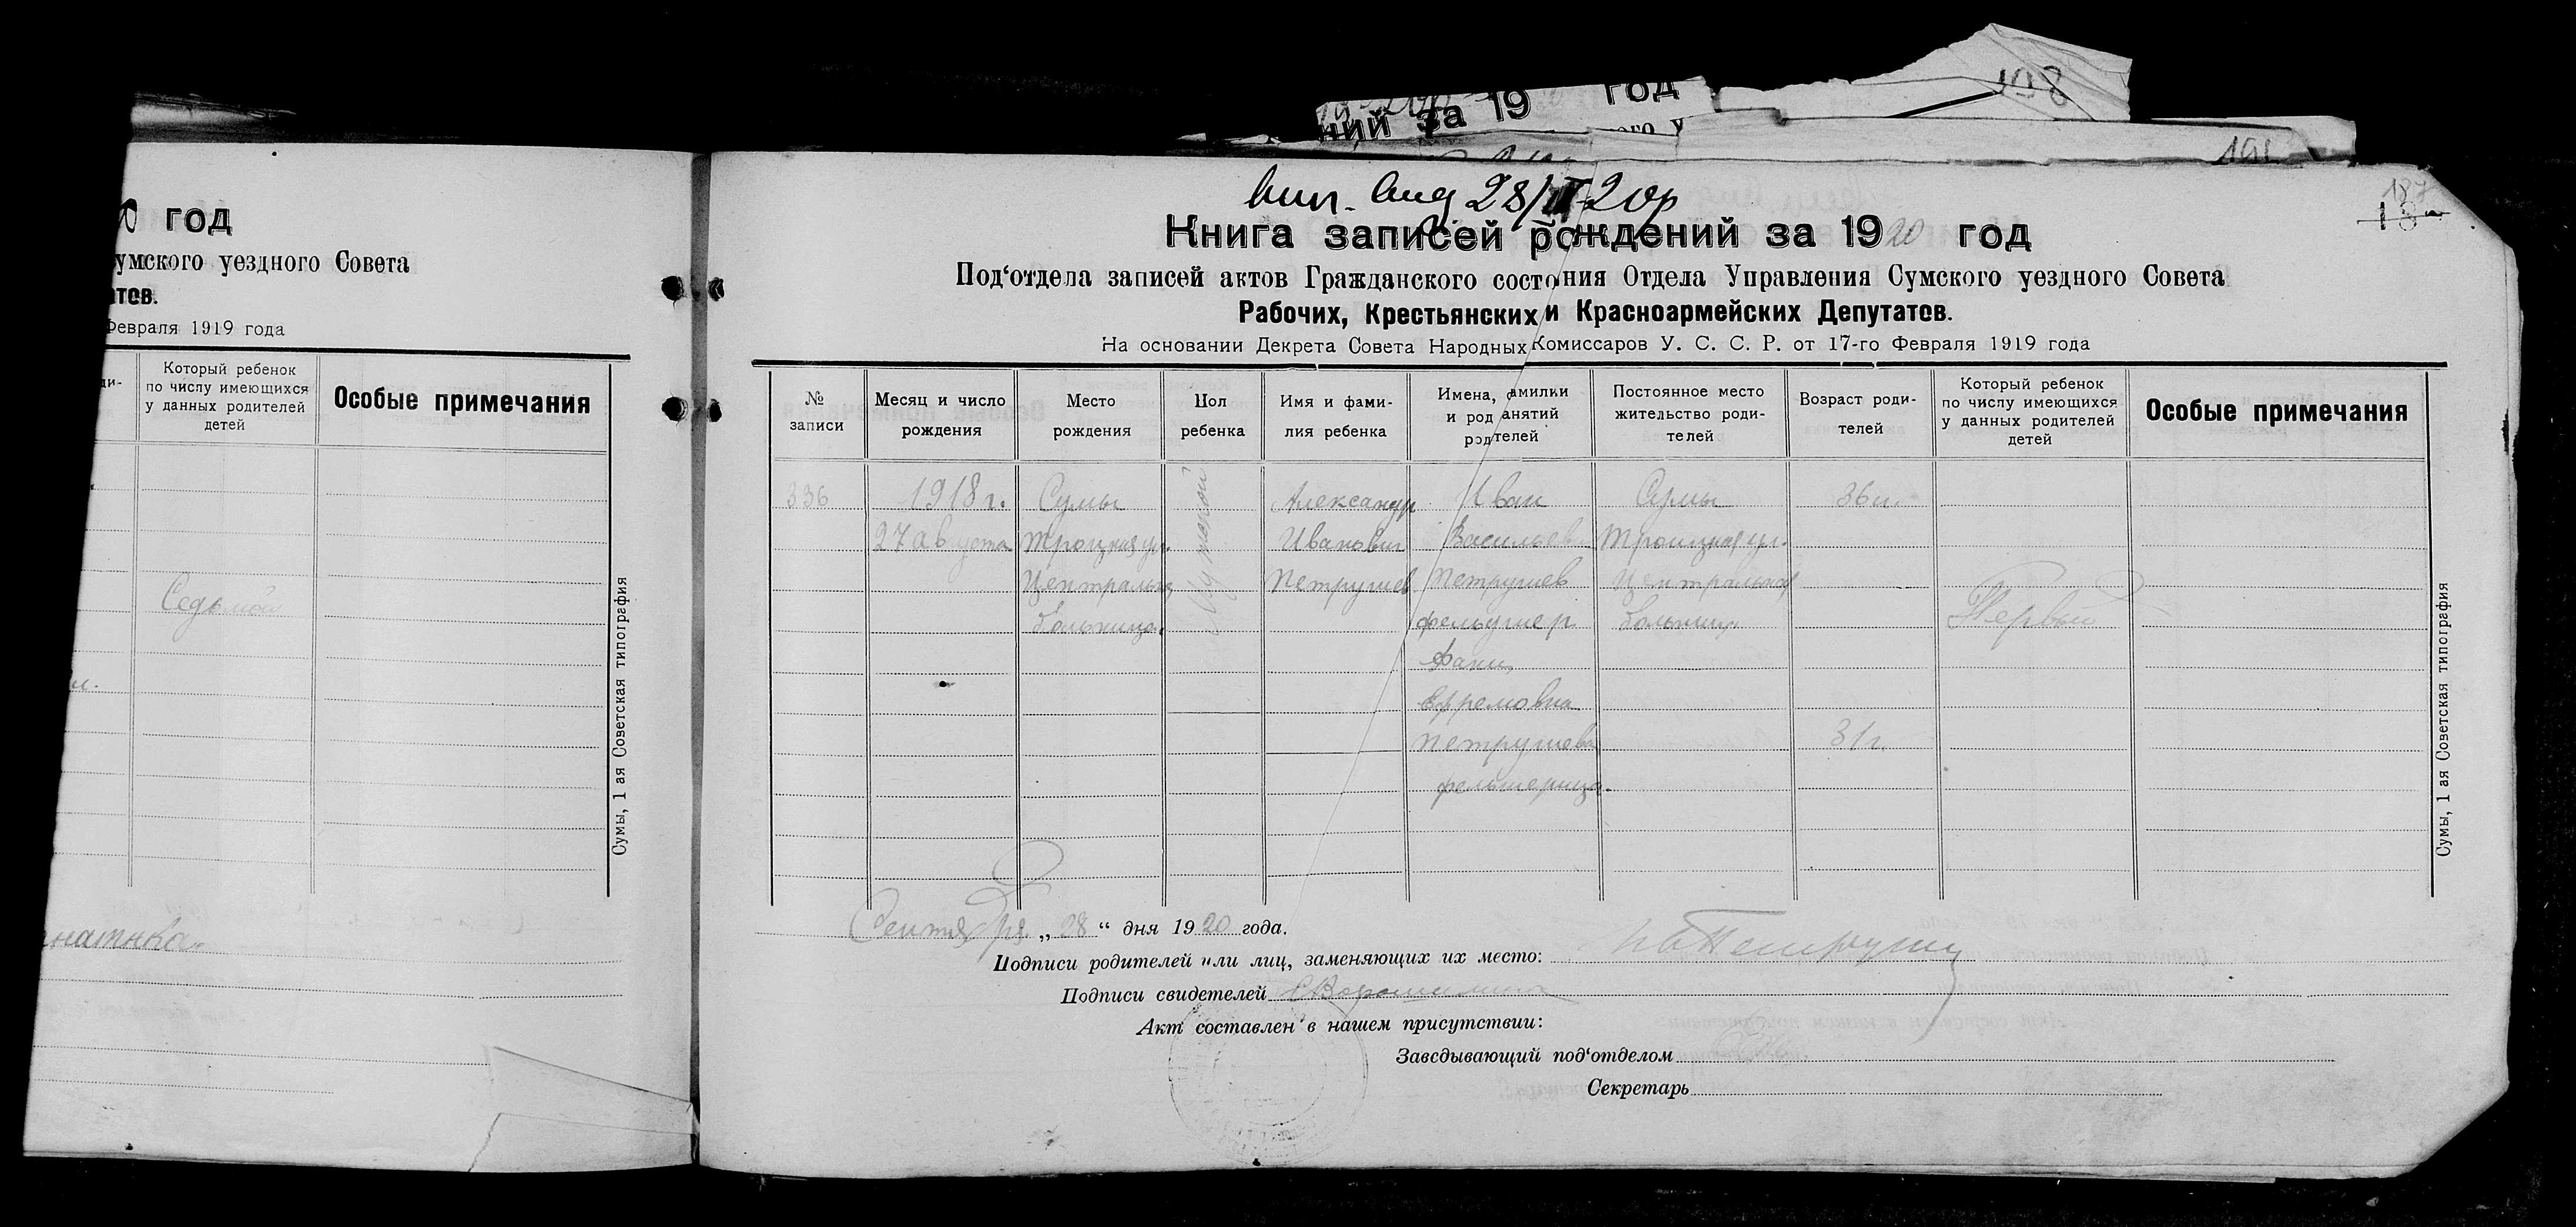 ний за 19 год
198
191
год
умского уездного Совета
атов.
Февраля 1919 года
ди-
Который ребенок
по числу имеющихся
у данных родителей
детей
Особые примечания
Седьмой
Сумы, 1 ая Советская типография
вип.
187
Книга записей рождений за 1920 год
Под‘отдела записей актов Гражданского состояния Отдела Управления Сумского уездного Совета
Рабочих, Крестьянских и Красноармейских Депутатов.
На основании Декрета Совета Народных Комиссаров У. С. С. Р. от 17-го Февраля 1919 года
№
записи
Месяц и число
рождения
Место
рождения
Пол
ребенка
Имя и фами-
лия ребенка
Имена, фамилки
и род занятий
родителей
Постоянное место
жительство роди-
телей
Возраст роди-
телей
Который ребенок
по числу имеющихся
у данных родителей
детей
Особые примечания
336
1918 г.
27 августа
Сумы
Троицкая ул.
Центральная
больница.
Мужской
Александр
Иванович
Петрушев
Иван
Васильевич
Петрушев
фельдшер
Фаня
Ефремовна
Петрушева
фельшерица.
Сумы
Троицкая ул.
Центральная
больница
36 л.
31 г.
Первый
Сумы, 1 ая Советская типография
Сентября „28“ дня 1920 года.
Подписи родителей или лиц, заменяющих их место:
Подписи свидетелей
Акт составлен в нашем присутствии:
Заведывающий под‘отделом
Секретарь